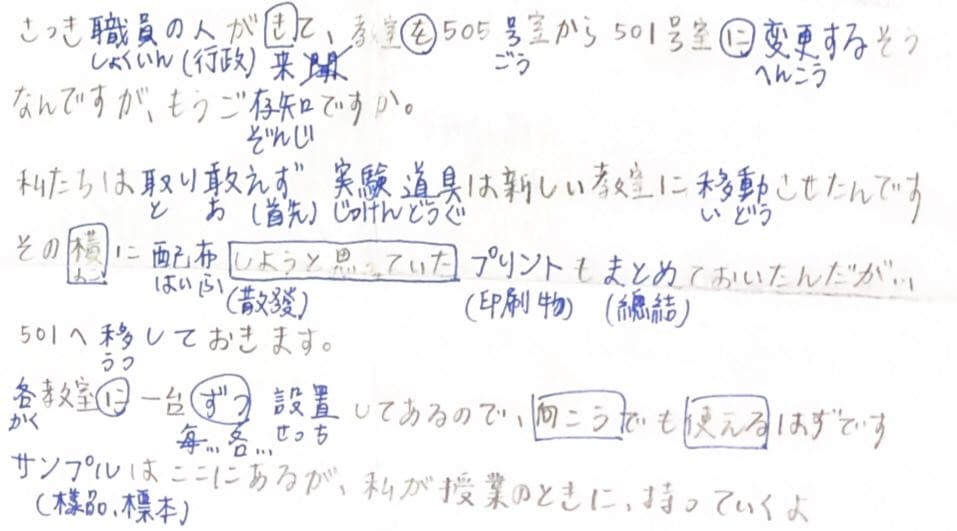 さっき職員の人がきて、教室を505号室から501号室に変更するそう
しょくいん(行政) 来 ごう へんこう
なんですが、もうご存知ですか。
ぞんじ
私たちは取り敢えず 実験道具は新しい教室に移動させたんです
と お (首先) じっけんどうぐ いどう
その横に配布しようと思っていたプリントもまとめておいたんだが...
よこ はいふ (散發) (印刷物) (總結)
501へ移しておきます。
うつ
各教室に一台ずつ設置してあるので、向こうでも使えるはずです
かく 每...各... せっち
サンプルはここにあるが、私が授業のときに、持っていくよ
(樣品、標本)